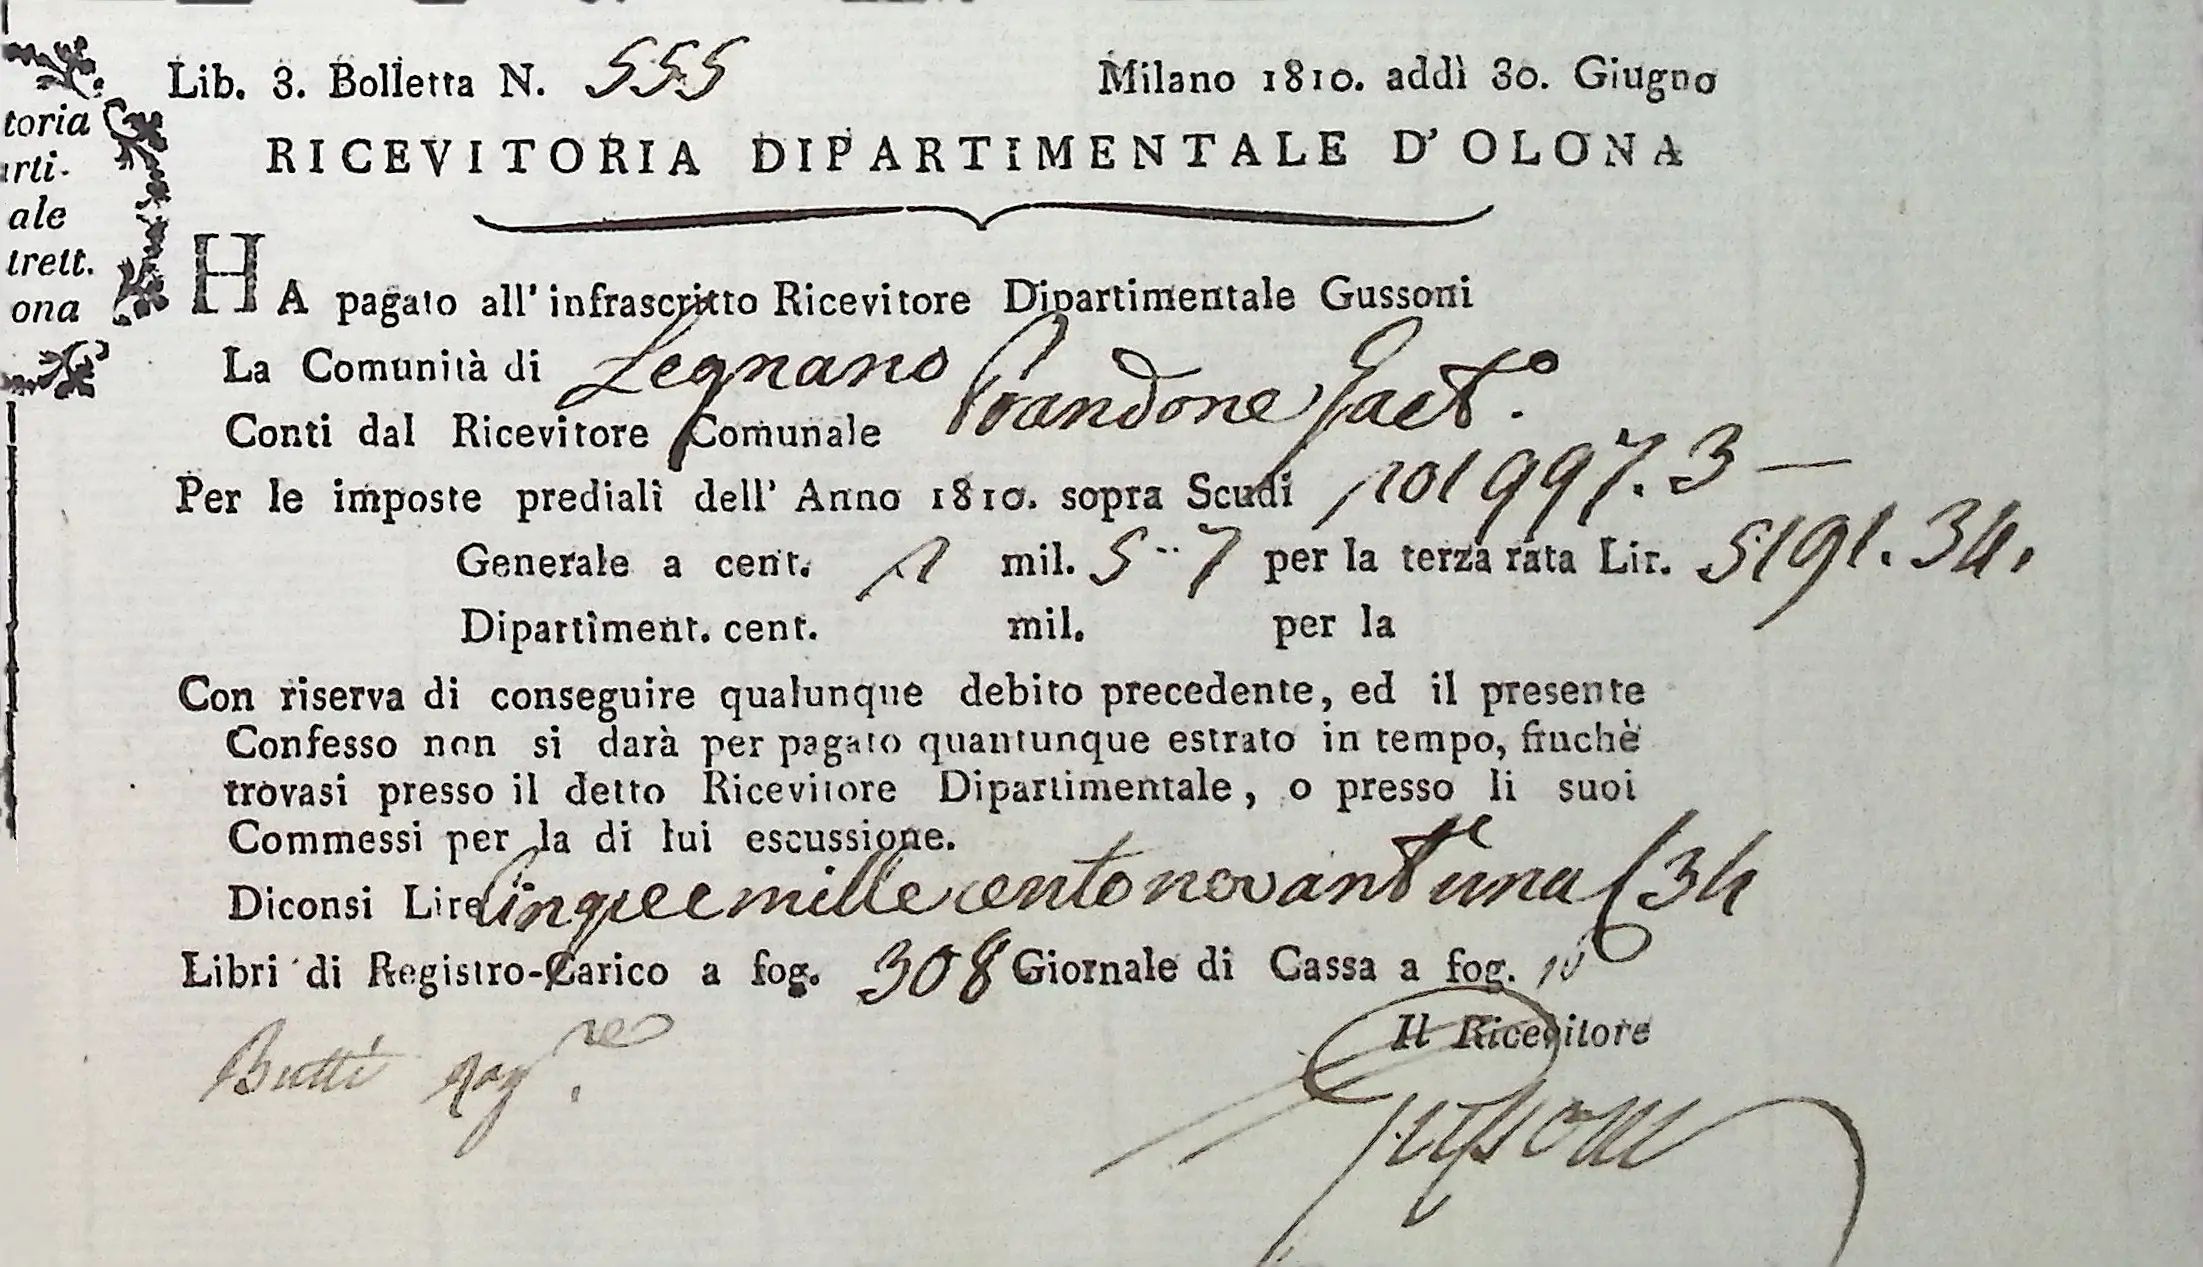 toria
arti-
ale
trett.
ona
Lib. 3. Bolletta N. 555
Milano 1810. addì 30. Giugno
RICEVITORIA DIPARTIMENTALE D'OLONA
HA pagato all'infrascritto Ricevitore Dipartimentale Gussoni
La Comunità di Legnano
Conti dal Ricevitore Comunale Prandone Gaet.o
Per le imposte prediali dell'Anno 1810. sopra Scudi 101997.3 —
Generale a cent. 1 mil. 5 .. 7 per la terza rata Lir. 5191.34.
Dipartiment. cent. mil. per la
Con riserva di conseguire qualunque debito precedente, ed il presente
Confesso non si darà per pagato quantunque estrato in tempo, finchè
trovasi presso il detto Ricevitore Dipartimentale, o presso li suoi
Commessi per la di lui escussione.
Diconsi Lire Cinquemille centonovantuna 34
Libri di Registro-Carico a fog. 308 Giornale di Cassa a fog.
Il Ricevitore
Butti Rag.re
Gussoni